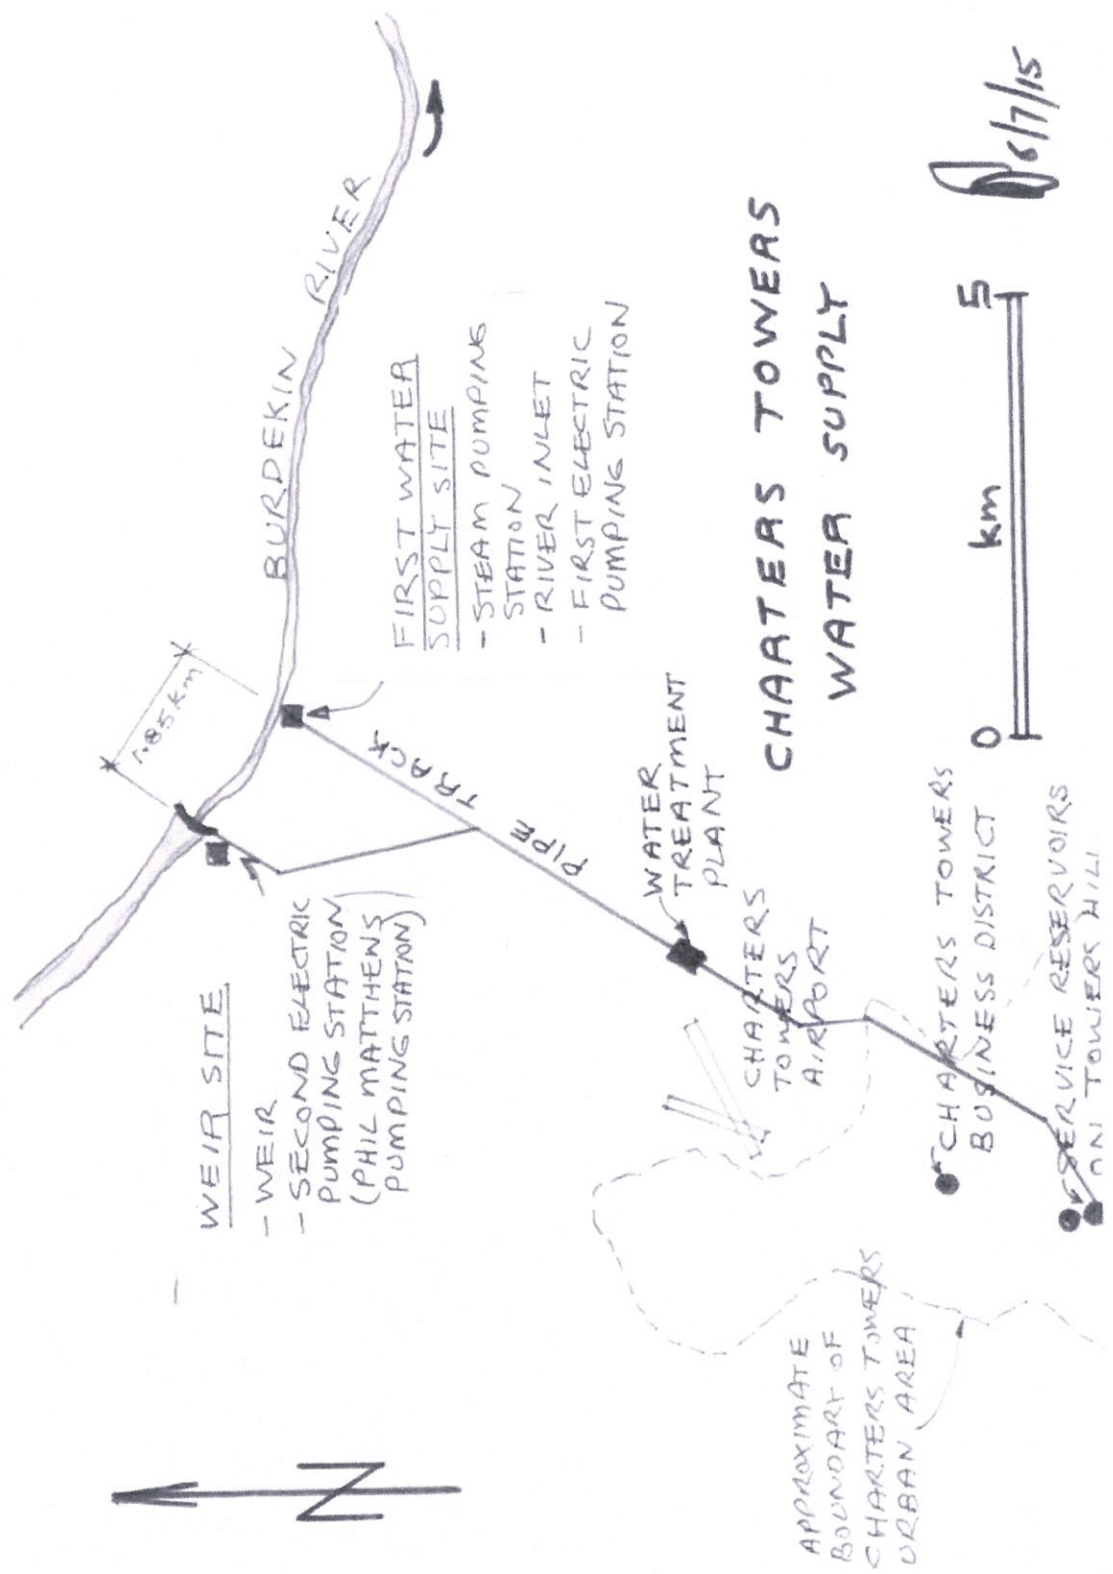 BURDEKIN RIVER
1.85 km
FIRST WATER
SUPPLY SITE
- STEAM PUMPING
STATION
- RIVER INLET
- FIRST ELECTRIC
PUMPING STATION
WEIR SITE
- WEIR
- SECOND ELECTRIC
PUMPING STATION
(PHIL MATTHENS
PUMPING STATION)
PIPE TRACK
WATER
TREATMENT
PLANT
CHARTERS
TOWERS
AIRPORT
CHARTERS TOWERS
BUSINESS DISTRICT
SERVICE RESERVOIRS
ON TOWERS HILL
APPROXIMATE
BOUNDARY OF
CHARTERS TOWERS
URBAN AREA
N
CHARTERS TOWERS
WATER SUPPLY
0 km 5
6/7/15